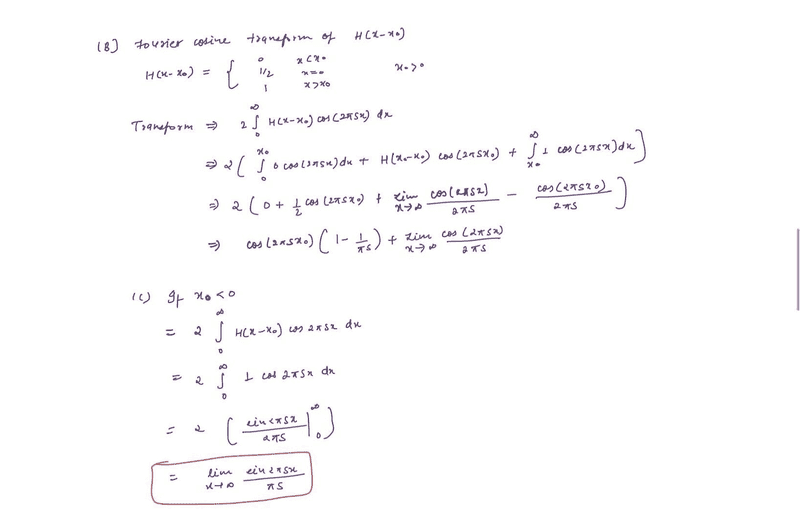 (B) Fourier cosine transform of H(x-x₀)
H(x-x₀) = { 0 x<x₀
1/2 x=0 x₀>0
1 x>x₀
Transform ⇒ 2 ∫₀^∞ H(x-x₀) cos(2πsx) dx
⇒ 2 ( ∫₀^x₀ 0 cos(2πsx) dx + H(x₀-x₀) cos(2πsx₀) + ∫ₓ₀^∞ 1 cos(2πsx) dx )
⇒ 2 ( 0 + 1/2 cos(2πsx₀) + lim x→∞ cos(2πsx)/2πs - cos(2πsx₀)/2πs )
⇒ cos(2πsx₀) ( 1 - 1/πs ) + lim x→∞ cos(2πsx)/2πs
(C) If x₀<0
= 2 ∫₀^∞ H(x-x₀) cos 2πsx dx
= 2 ∫₀^∞ 1 cos 2πsx dx
= 2 ( sin 2πsx/2πs |₀^∞ )
= lim x→∞ sin 2πsx/πs